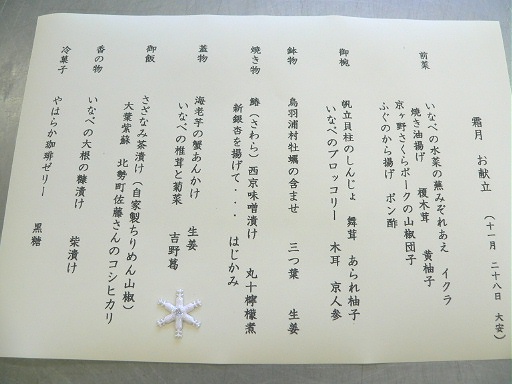 霜月　お献立　（十一月　二十八日　大安）
前菜　いなべの水菜の蕪みぞれあえ　イクラ
焼き油揚げ　榎木茸　黄柚子
京ヶ野さくらポークの山椒団子
ふぐのから揚げ　ポン酢
御椀　帆立貝柱のしんじょ　舞茸　あられ柚子
いなべのブロッコリー　木耳　京人参
鉢物　鳥羽浦村牡蠣の含ませ　三つ葉　生姜
焼き物　鰆（さわら）西京味噌漬け　丸十檸檬煮
新銀杏を揚げて・・・　はじかみ
蓋物　海老芋の蟹あんかけ　生姜
いなべの椎茸と菊菜　吉野葛
御飯　さざなみ茶漬け（自家製ちりめん山椒）
大葉紫蘇　北勢町佐藤さんのコシヒカリ
香の物　いなべの大根の糠漬け　柴漬け
冷菓子　やはらか珈琲ゼリー　黒糖